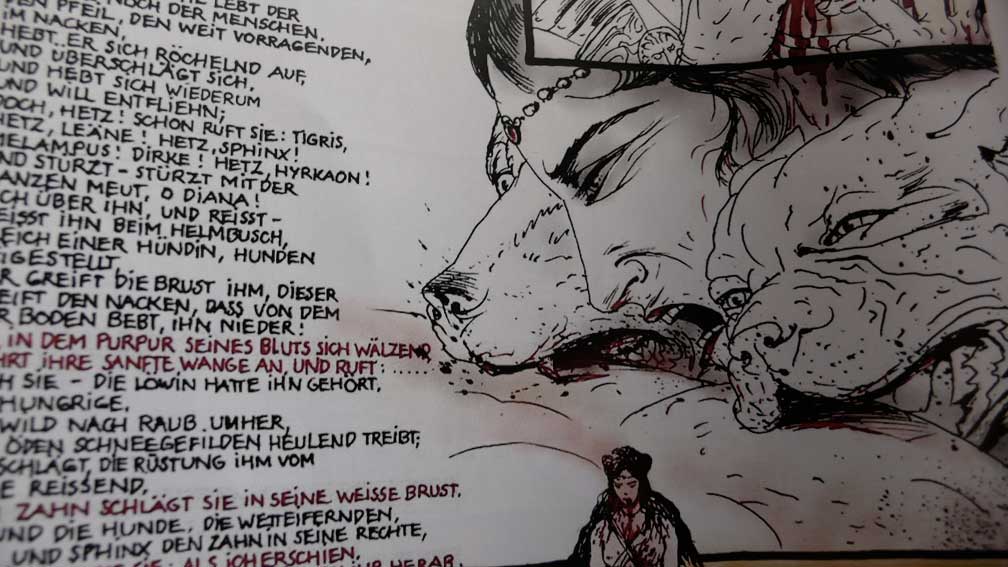 LEBT DER
NOCH DER MENSCHEN.
EN PFEIL, DEN WEIT VORRAGENDEN,
IM NACKEN,
HEBT ER SICH RÖCHELND AUF,
UND ÜBERSCHLÄGT SICH,
UND HEBT SICH WIEDERUM
UND WILL ENTFLIEHN;
DOCH, HETZ! SCHON RUFT SIE: TIGRIS,
HETZ, LEÄNE! HETZ, SPHINX!
MELAMPUS! DIRKE! HETZ, HYRKAON!
ND STÜRZT - STÜRZT MIT DER
ANZEN MEUT, O DIANA!
CH ÜBER IHN, UND REISST -
EISST IHN BEIM HELMBUSCH,
EICH EINER HÜNDIN, HUNDEN
IGESTELLT
R GREIFT DIE BRUST IHM, DIESER
EIFT DEN NACKEN, DASS VON DEM
R BODEN BEBT, IHN NIEDER!
, IN DEM PURPUR SEINES BLUTS SICH WÄLZEND,
HRT IHRE SANFTE WANGE AN, UND RUFT: ......
H SIE - DIE LÖWIN HATTE IHN GEHÖRT,
HUNGRIGE,
WILD NACH RAUB UMHER,
ÖDEN SCHNEEGEFILDEN HEULEND TREIBT;
SCHLÄGT, DIE RÜSTUNG IHM VOM
E REISSEND,
ZAHN SCHLÄGT SIE IN SEINE WEISSE BRUST,
UND DIE HUNDE, DIE WETTEIFERNDEN,
UND SPHINX DEN ZAHN IN SEINE RECHTE,
SIE; ALS ICH ERSCHIEN,
HERAB.